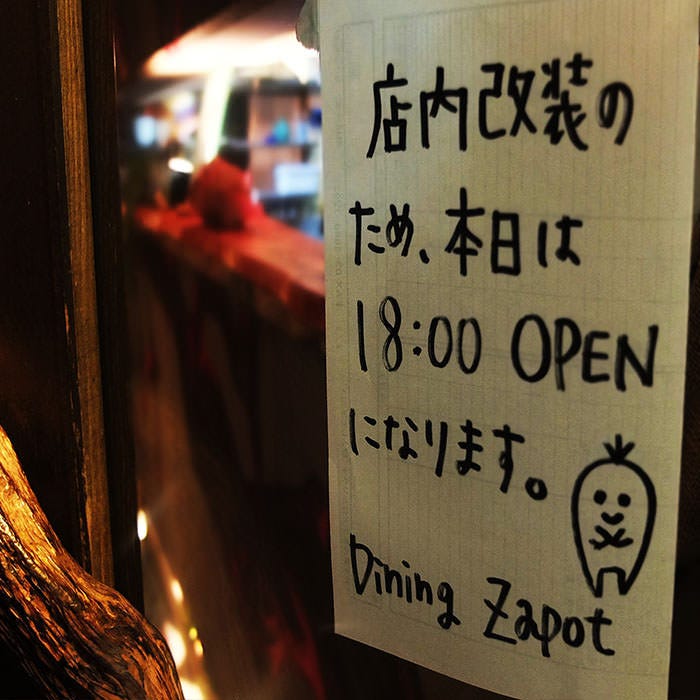 店内改装の
ため、本日は
18:00 OPEN
になります。
Dining Zapot